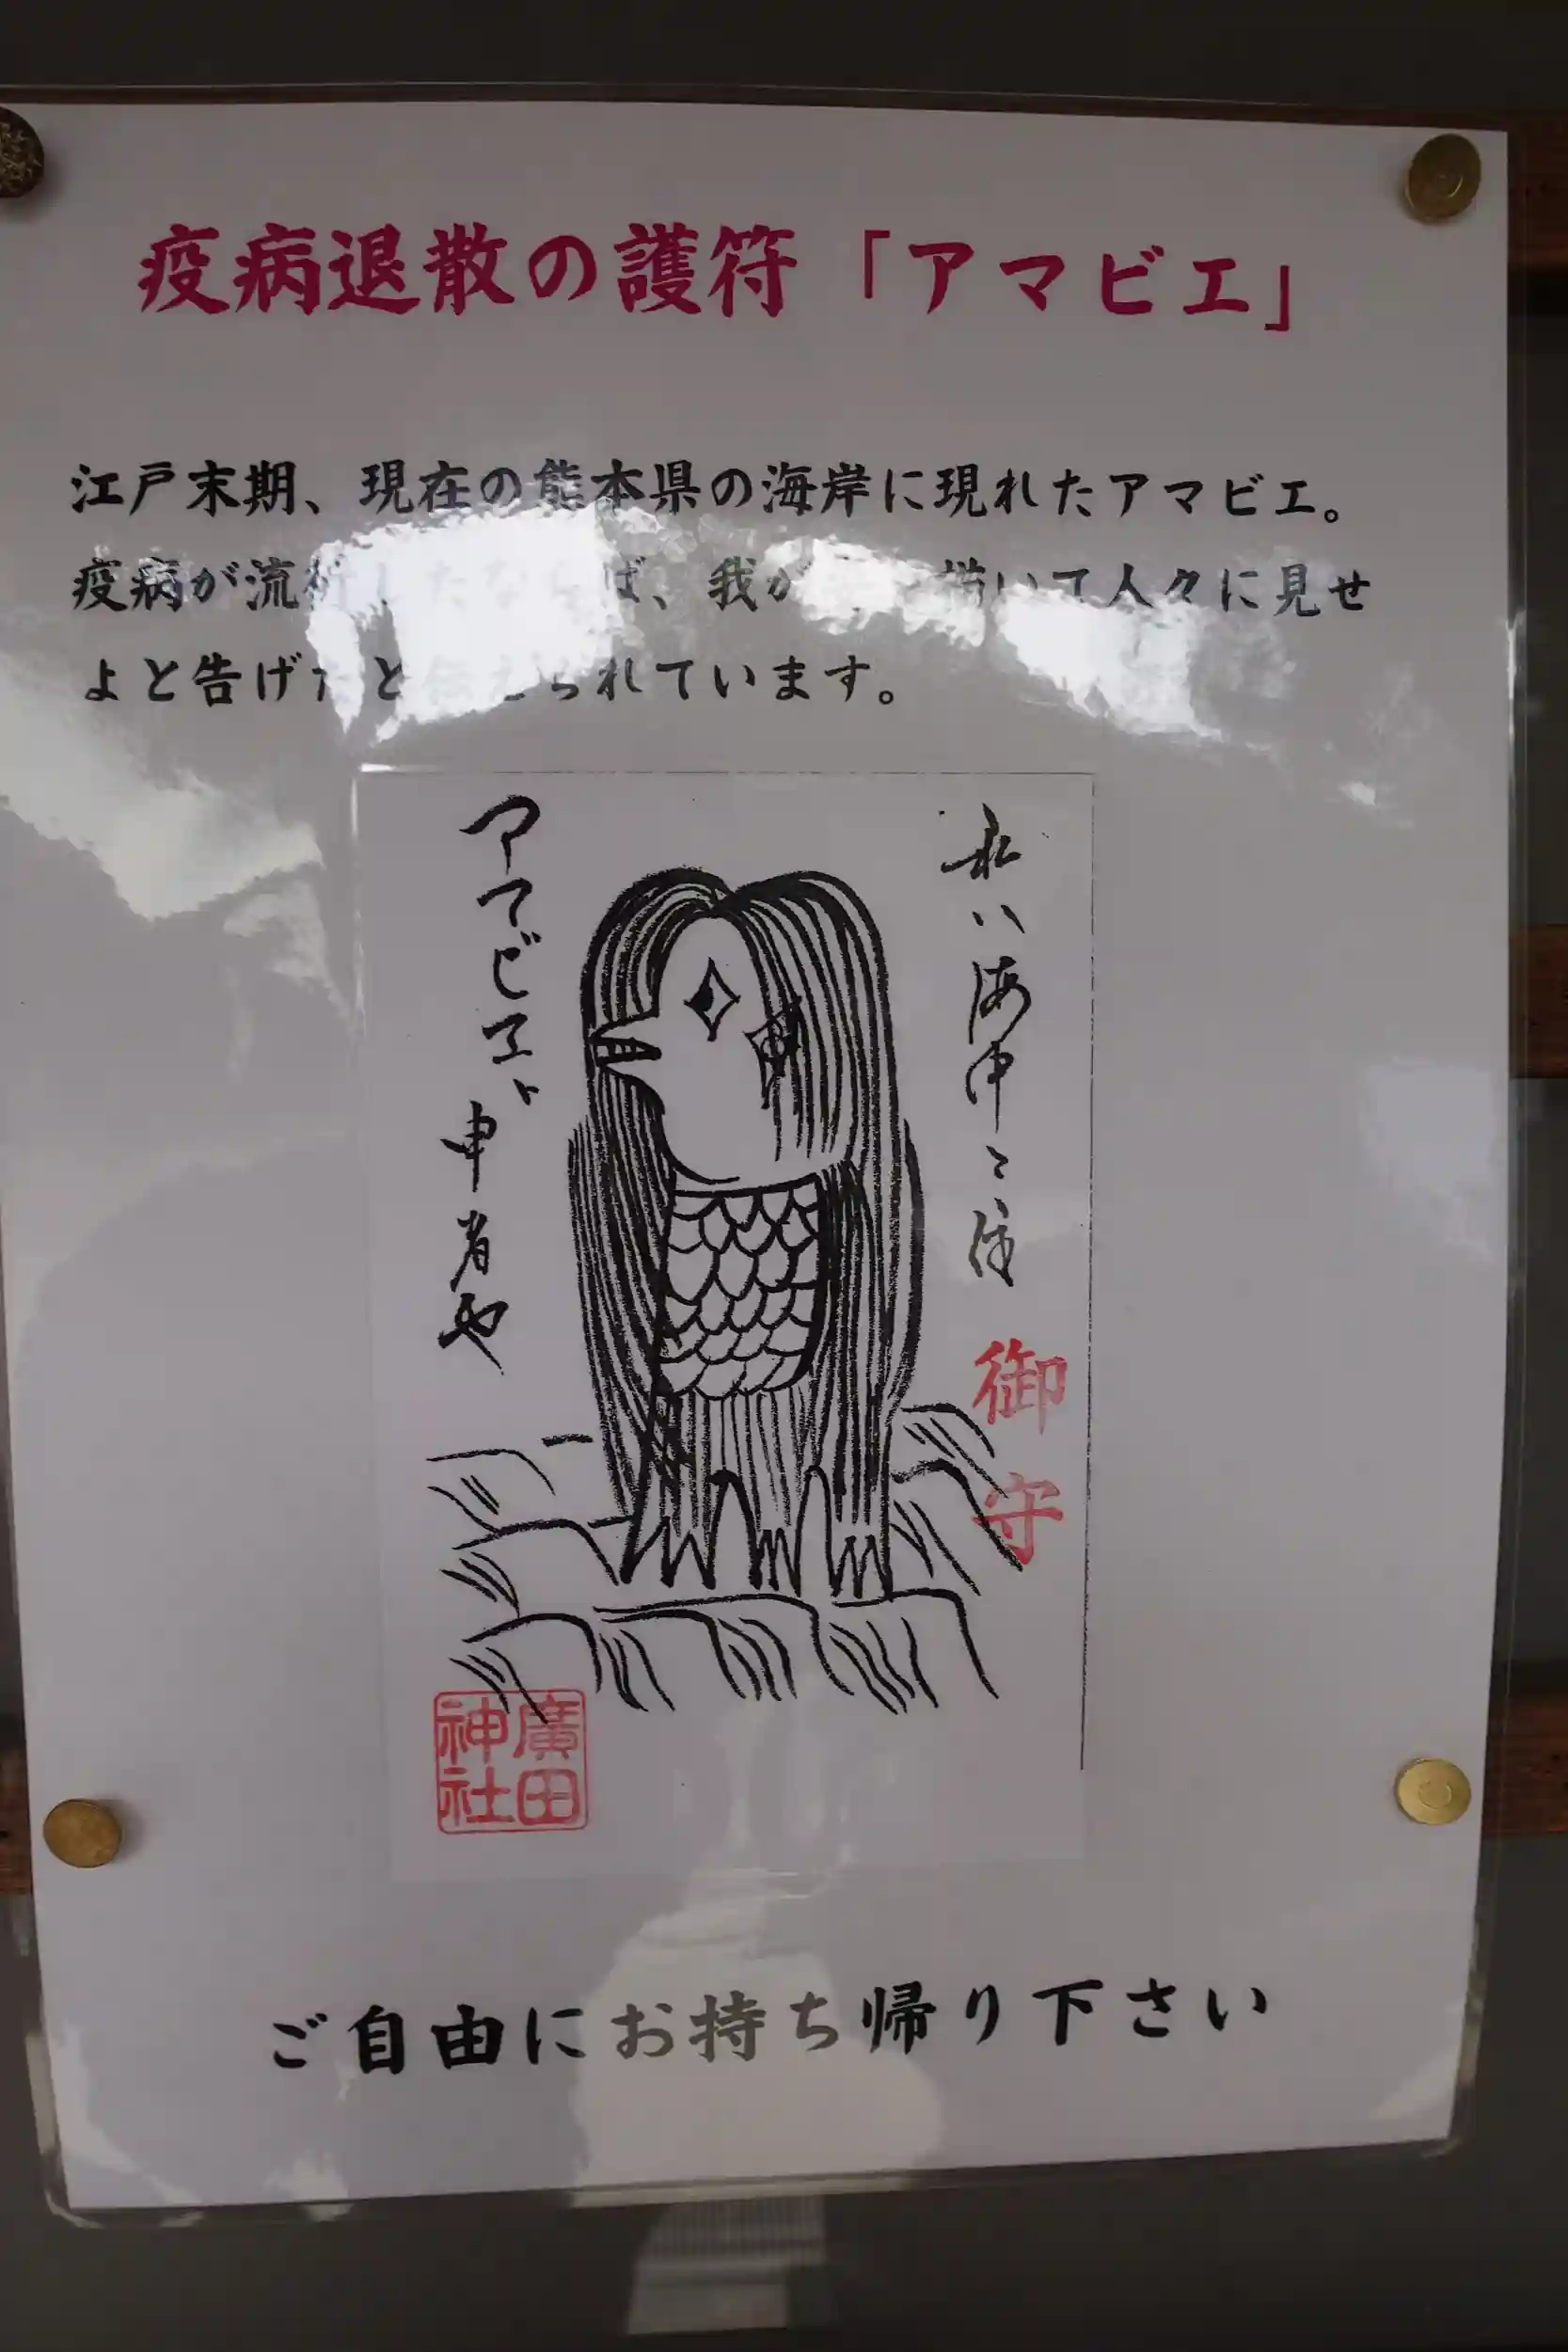 疫病退散の護符「アマビエ」
江戸末期、現在の熊本県の海岸に現れたアマビエ。
疫病が流行したならば、我が 描いて人々に見せ
よと告げたと伝えられています。
私ハ海中ニ住
アマビヱト
申者也
御守
廣田
神社
ご自由にお持ち帰り下さい